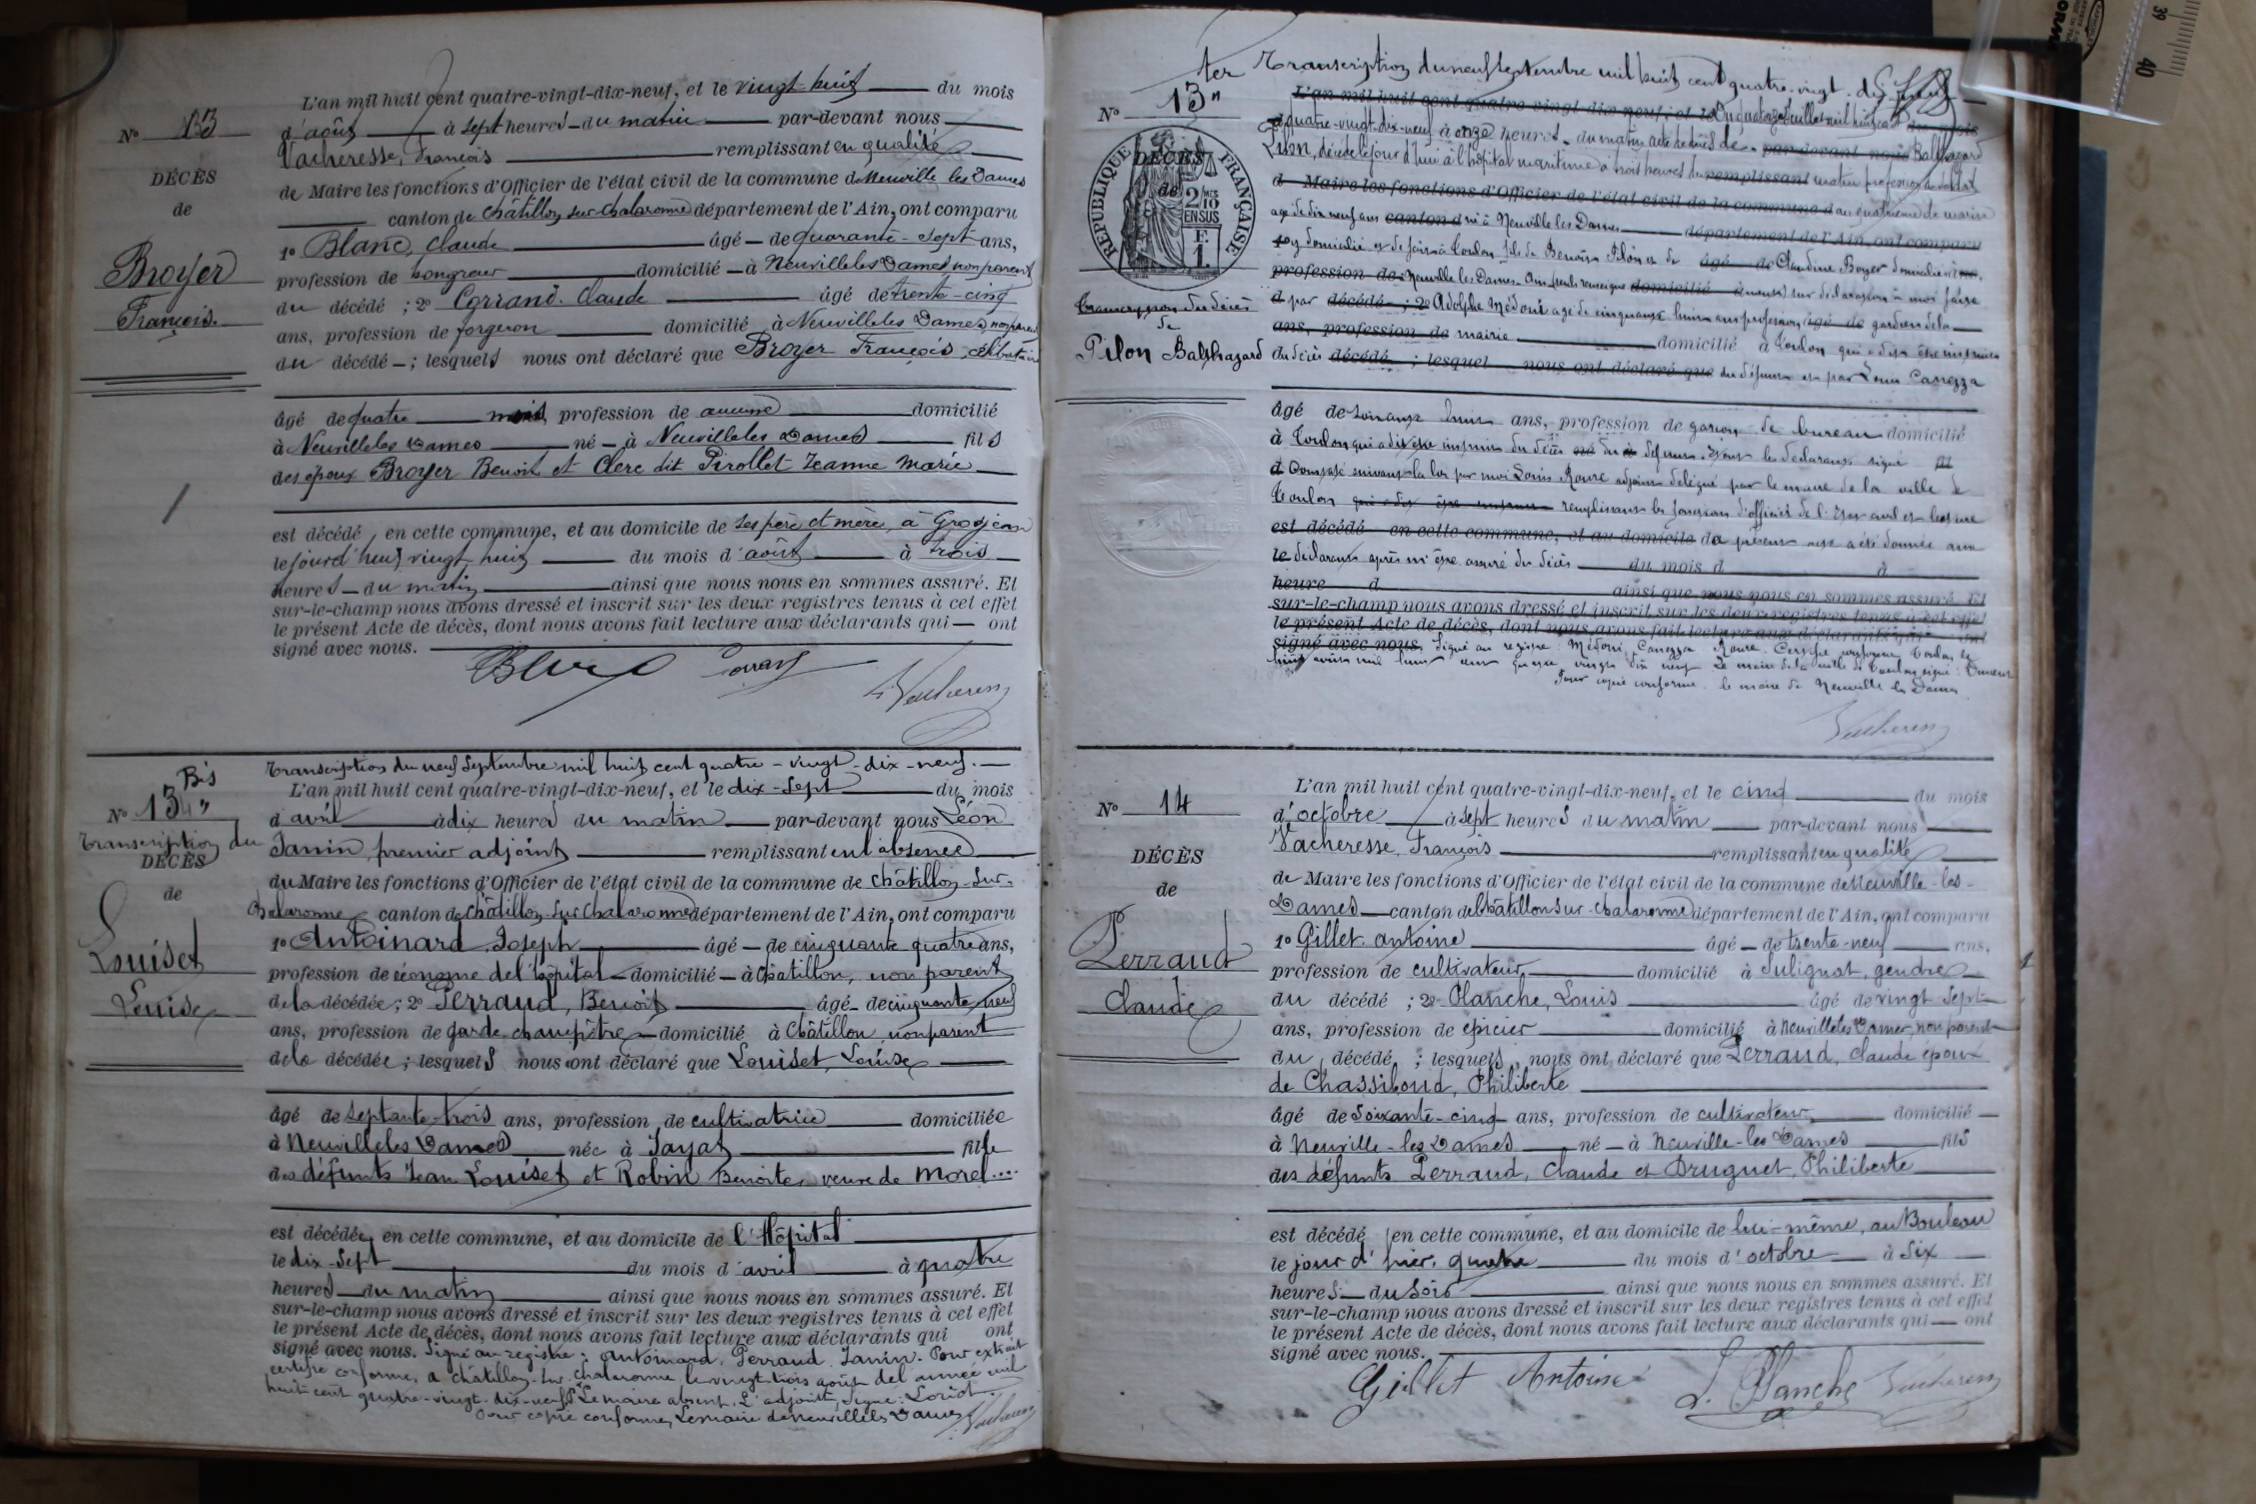 N° 13
DÉCÈS
de
Broyer
François.
L'an mil huit cent quatre-vingt-dix-neuf, et le vingt-huit du mois
d'août à sept heures du matin par-devant nous
Vacheresse, François remplissant en qualité
de Maire les fonctions d'Officier de l'état civil de la commune de Neuville les Dames
canton de Châtillon sur Chalaronne département de l'Ain, ont comparu
1° Blanc, Claude âgé de quarante-sept ans,
profession de hongreur domicilié à Neuville les Dames non parent
du décédé ; 2° Corrand Claude âgé de trente-cinq
ans, profession de forgeron domicilié à Neuville les Dames, non parent
du décédé ; lesquels nous ont déclaré que Broyer François, célibataire
âgé de quatre mois, profession de aucune domicilié
à Neuville les Dames né à Neuville les Dames fils
des époux Broyer Benoit et Clerc dit Pirollet Jeanne Marie
est décédé en cette commune, et au domicile de ses père et mère, à Grosjean
le jourd'hui vingt huit du mois d'août à trois
heures du matin ainsi que nous nous en sommes assuré. Et
sur-le-champ nous avons dressé et inscrit sur les deux registres tenus à cet effet
le présent Acte de décès, dont nous avons fait lecture aux déclarants qui ont
signé avec nous.
Corrand F. Vacheresse
N° 13 Bis
Transcription du
DÉCÈS
de
Louiset
Louise
Transcription du neuf Septembre mil huit cent quatre-vingt-dix-neuf.
L'an mil huit cent quatre-vingt-dix-neuf, et le dix-sept du mois
d'avril à dix heures du matin par-devant nous Léon
Janin, premier adjoint remplissant en l'absence
du Maire les fonctions d'Officier de l'état civil de la commune de Châtillon-sur-
Chalaronne canton de Châtillon-sur-Chalaronne département de l'Ain, ont comparu
1° Antoinard Joseph âgé de cinquante quatre ans,
profession de économe de l'hôpital domicilié à Châtillon, non parent
de la décédée ; 2° Perraud, Benoît âgé de cinquante neuf
ans, profession de garde champêtre domicilié à Châtillon, non parent
de la décédée ; lesquels nous ont déclaré que Louiset, Louise
âgé de septante-trois ans, profession de cultivatrice domiciliée
à Neuville les Dames née à Jayat fille
des défunts Jean Louiset et Robin Benoite, veuve de Morel...
est décédée en cette commune, et au domicile de l'Hôpital
le dix-sept du mois d'avril à quatre
heures du matin ainsi que nous nous en sommes assuré. Et
sur-le-champ nous avons dressé et inscrit sur les deux registres tenus à cet effet
le présent Acte de décès, dont nous avons fait lecture aux déclarants qui ont
signé avec nous. Signé au registre : Antoinard, Perraud, Janin. Pour extrait
certifié conforme, à Châtillon-sur-Chalaronne le vingt-trois août de l'année mil
huit cent quatre-vingt-dix-neuf. Le maire absent, L'adjoint, signé : Loriot.
Pour copie conforme, Le maire de Neuville les Dames Vacheresse
N° 13 ter
Transcription du neuf Septembre mil huit cent quatre-vingt-dix-neuf
RÉPUBLIQUE FRANÇAISE
DÉCÈS
de
2/10 EN SUS
F. 1
Transcription du décès
de
Pilon Balthazard
L'an mil huit cent quatre-vingt-dix-neuf, et le Du quatorze Juillet mil huit cent du mois
quatre-vingt-dix-neuf à onze heures du matin acte de décès de par-devant nous Balthazard
Pilon, décédé le jour d'hui à l'hôpital maritime à trois heures du remplissant matin profession de soldat
d Maire les fonctions d'Officier de l'état civil de la commune d au quatrième de marine
âgé de dix neuf ans canton d né à Neuville les Dames département de l'Ain, ont comparu
domicilié et de fait à Toulon, fils de Benoît Pilon et de âgé de Claudine Boyer domiciliés
profession de Neuville les Dames domicilié sur déclaration à moi faite
par décédé ; 2° Adolphe Médori âgé de cinquante huit ans profession âgé de gardien de la
ans, profession de mairie domicilié à Toulon qui a dit être
du décès décédé ; lesquel nous ont déclaré que du défunt et par Louis Canezza
âgé de soixante huit ans, profession de garçon de bureau domicilié
à Toulon qui a dit être du décès né du défunt. Lesquels déclarants signé fil
d Constaté suivant la loi par moi Louis Roure adjoint délégué par le maire de la ville de
Toulon remplissant les fonctions d'officier de l'état civil et lecture
est décédé en cette commune, et au domicile d présent acte a été donnée aux
le déclarants après m'être assuré du décès du mois d à
heure d ainsi que nous nous en sommes assuré. Et
sur-le-champ nous avons dressé et inscrit sur les deux registres tenus à cet effet
le présent Acte de décès, dont nous avons fait lecture aux déclarants qui ont
signé avec nous. Signé au registre : Médori, Canezza, Roure. Certifié conforme Toulon le
huit août mil huit cent quatre vingt dix neuf Le maire de la ville de Toulon signé :
Pour copie conforme le maire de Neuville les Dames
Vacheresse
N° 14
DÉCÈS
de
Perraud
Claude
L'an mil huit cent quatre-vingt-dix-neuf, et le cinq du mois
d'octobre à sept heures du matin par-devant nous
Vacheresse, François remplissant en qualité
de Maire les fonctions d'Officier de l'état civil de la commune de Neuville-les-
Dames canton de Châtillon sur Chalaronne département de l'Ain, ont comparu
1° Gillet Antoine âgé de trente-neuf ans,
profession de cultivateur domicilié à Sulignat, gendre
du décédé ; 2° Planche, Louis âgé de vingt-sept
ans, profession de épicier domicilié à Neuville les Dames, non parent
du décédé ; lesquels nous ont déclaré que Perraud, Claude époux
de Chassiboud, Philiberte
âgé de soixante-cinq ans, profession de cultivateur domicilié
à Neuville-les-Dames né à Neuville-les-Dames fils
des défunts Perraud, Claude et Druguet, Philiberte
est décédé en cette commune, et au domicile de lui-même, au Bouleau
le jour d'hier, quatre du mois d'octobre à six
heures du soir ainsi que nous nous en sommes assuré. Et
sur-le-champ nous avons dressé et inscrit sur les deux registres tenus à cet effet
le présent Acte de décès, dont nous avons fait lecture aux déclarants qui ont
signé avec nous.
Gillet Antoine L. Planche Vacheresse
39
40